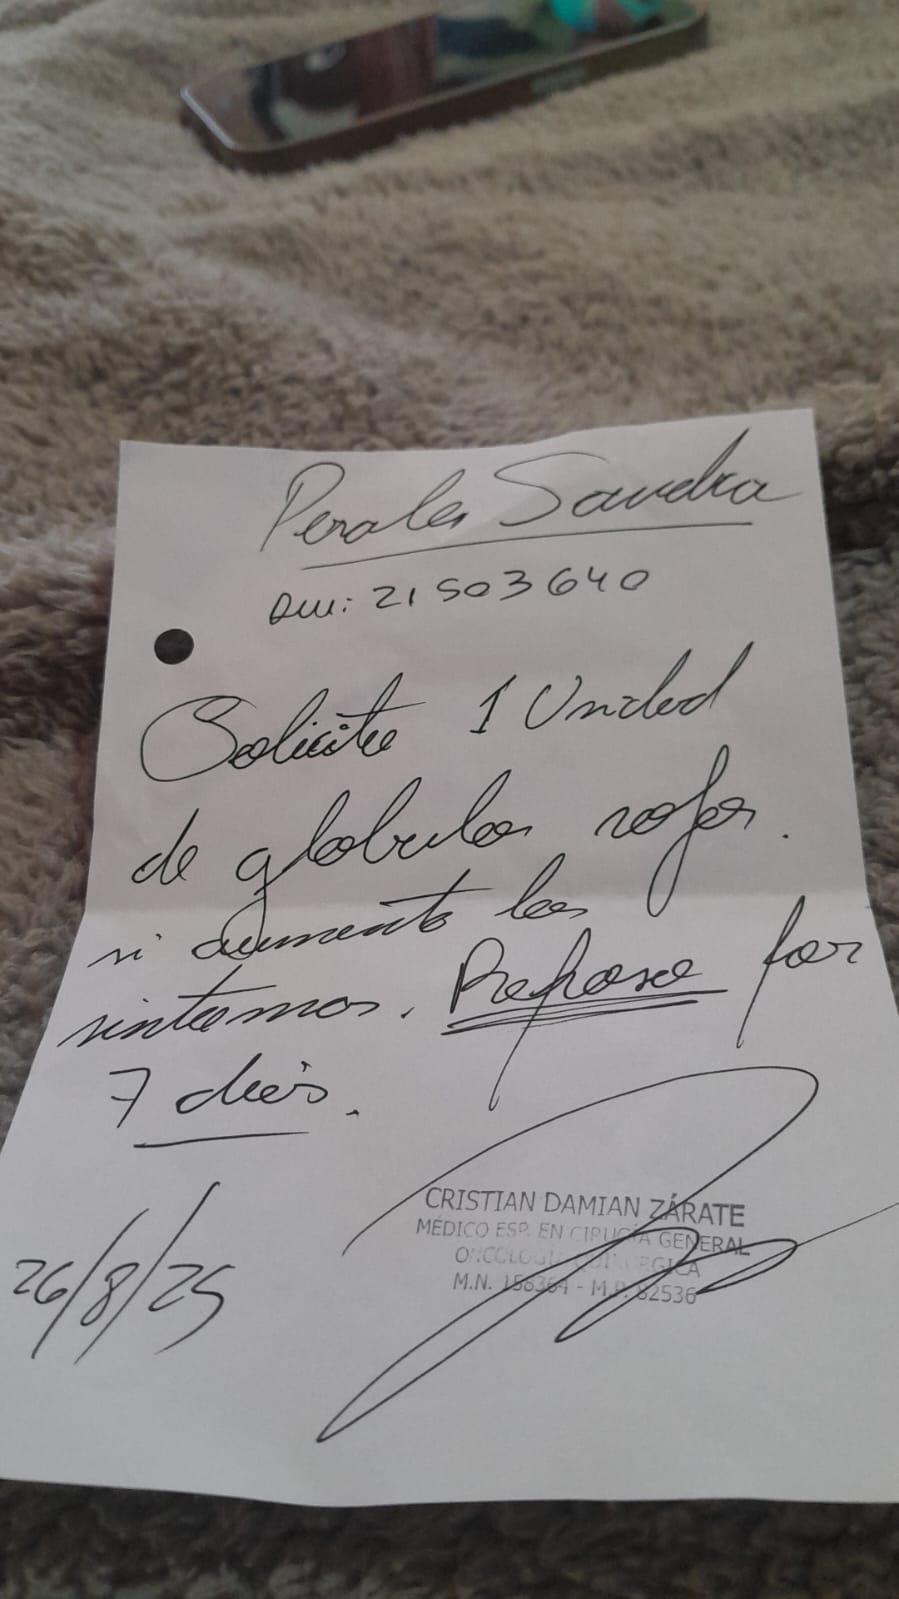 Perales Sandra
DNI: 21503640
Solicito 1 Unidad
de globulos rojos.
si aumento los
sintomas. Reposo por
7 dias.
26/8/25
CRISTIAN DAMIAN ZÁRATE
MÉDICO ESP. EN CIRUGÍA GENERAL
ONCOLOGÍA QUIRÚRGICA
M.N. 158364 - M.P. 82536